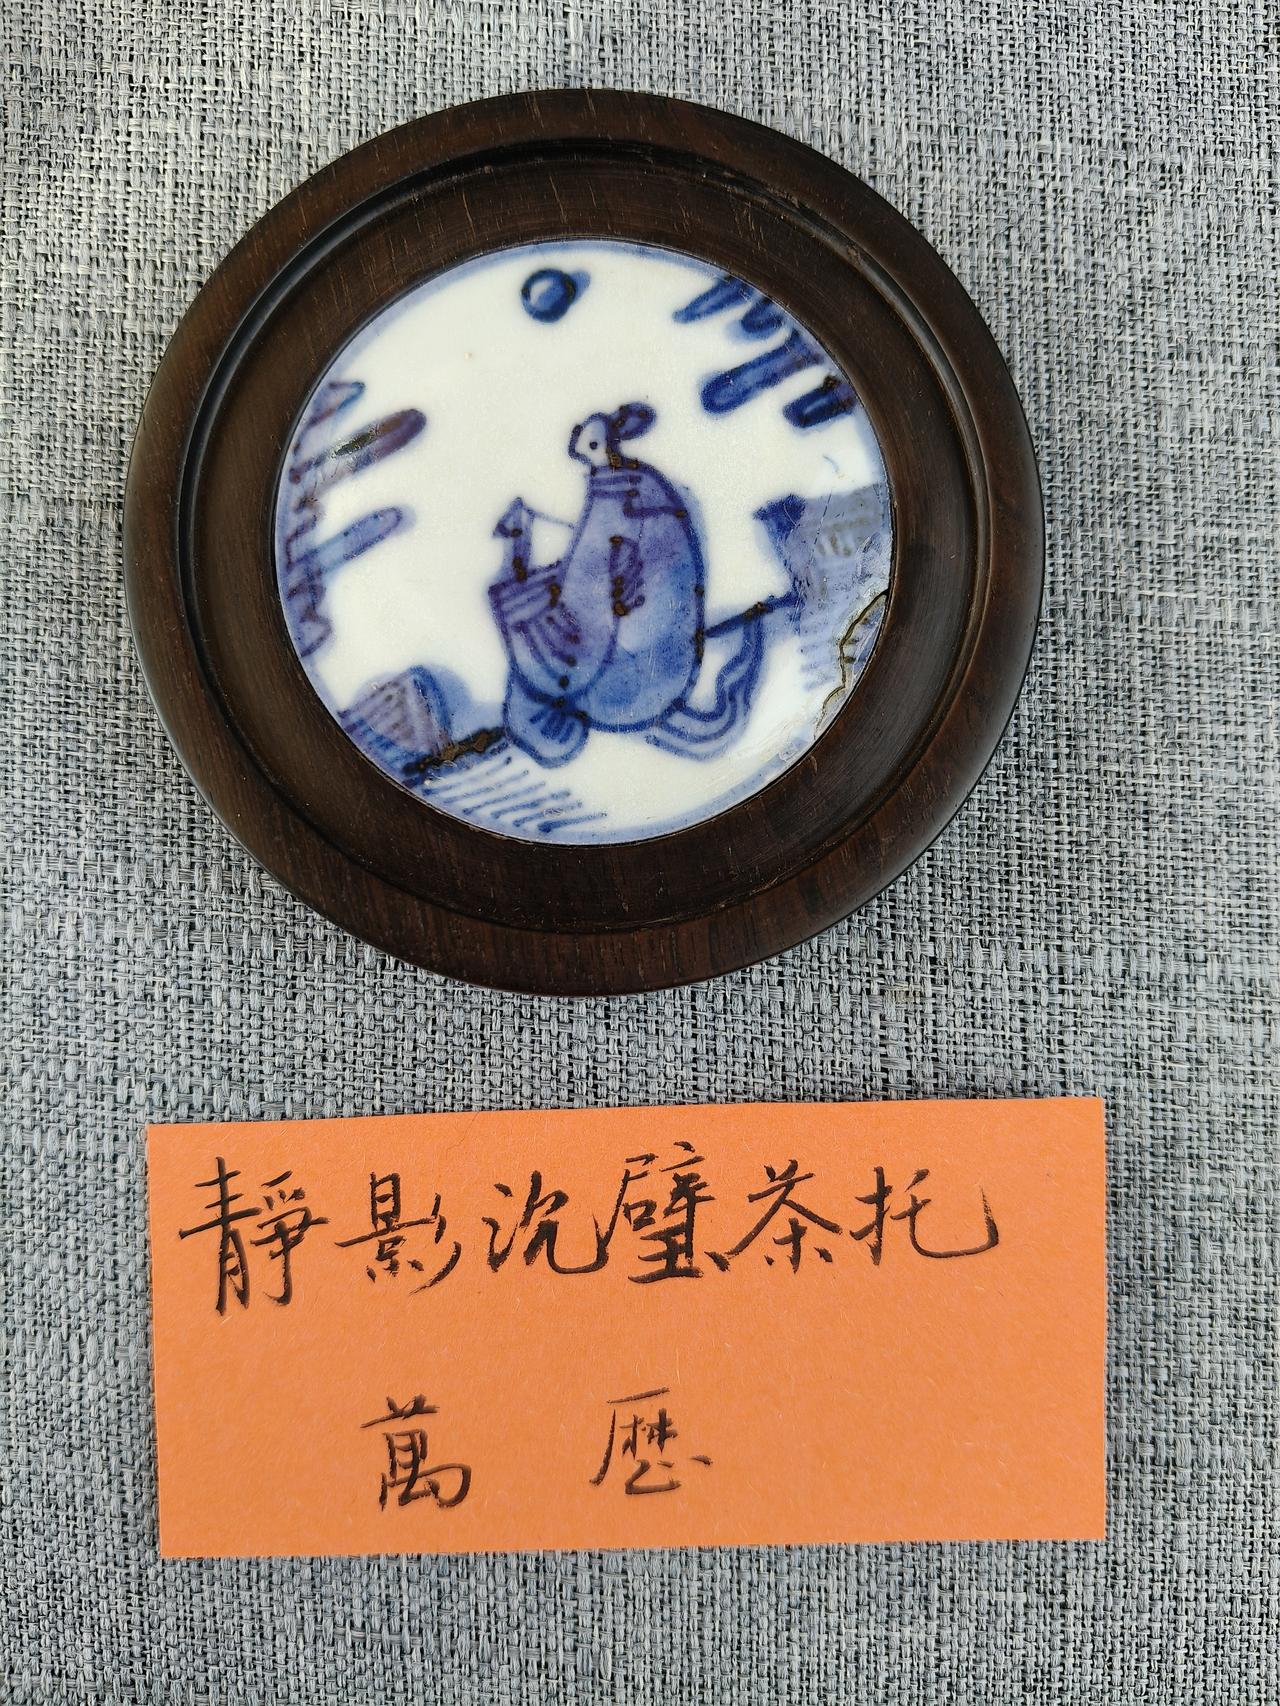 靜影沉璧茶托
萬歷